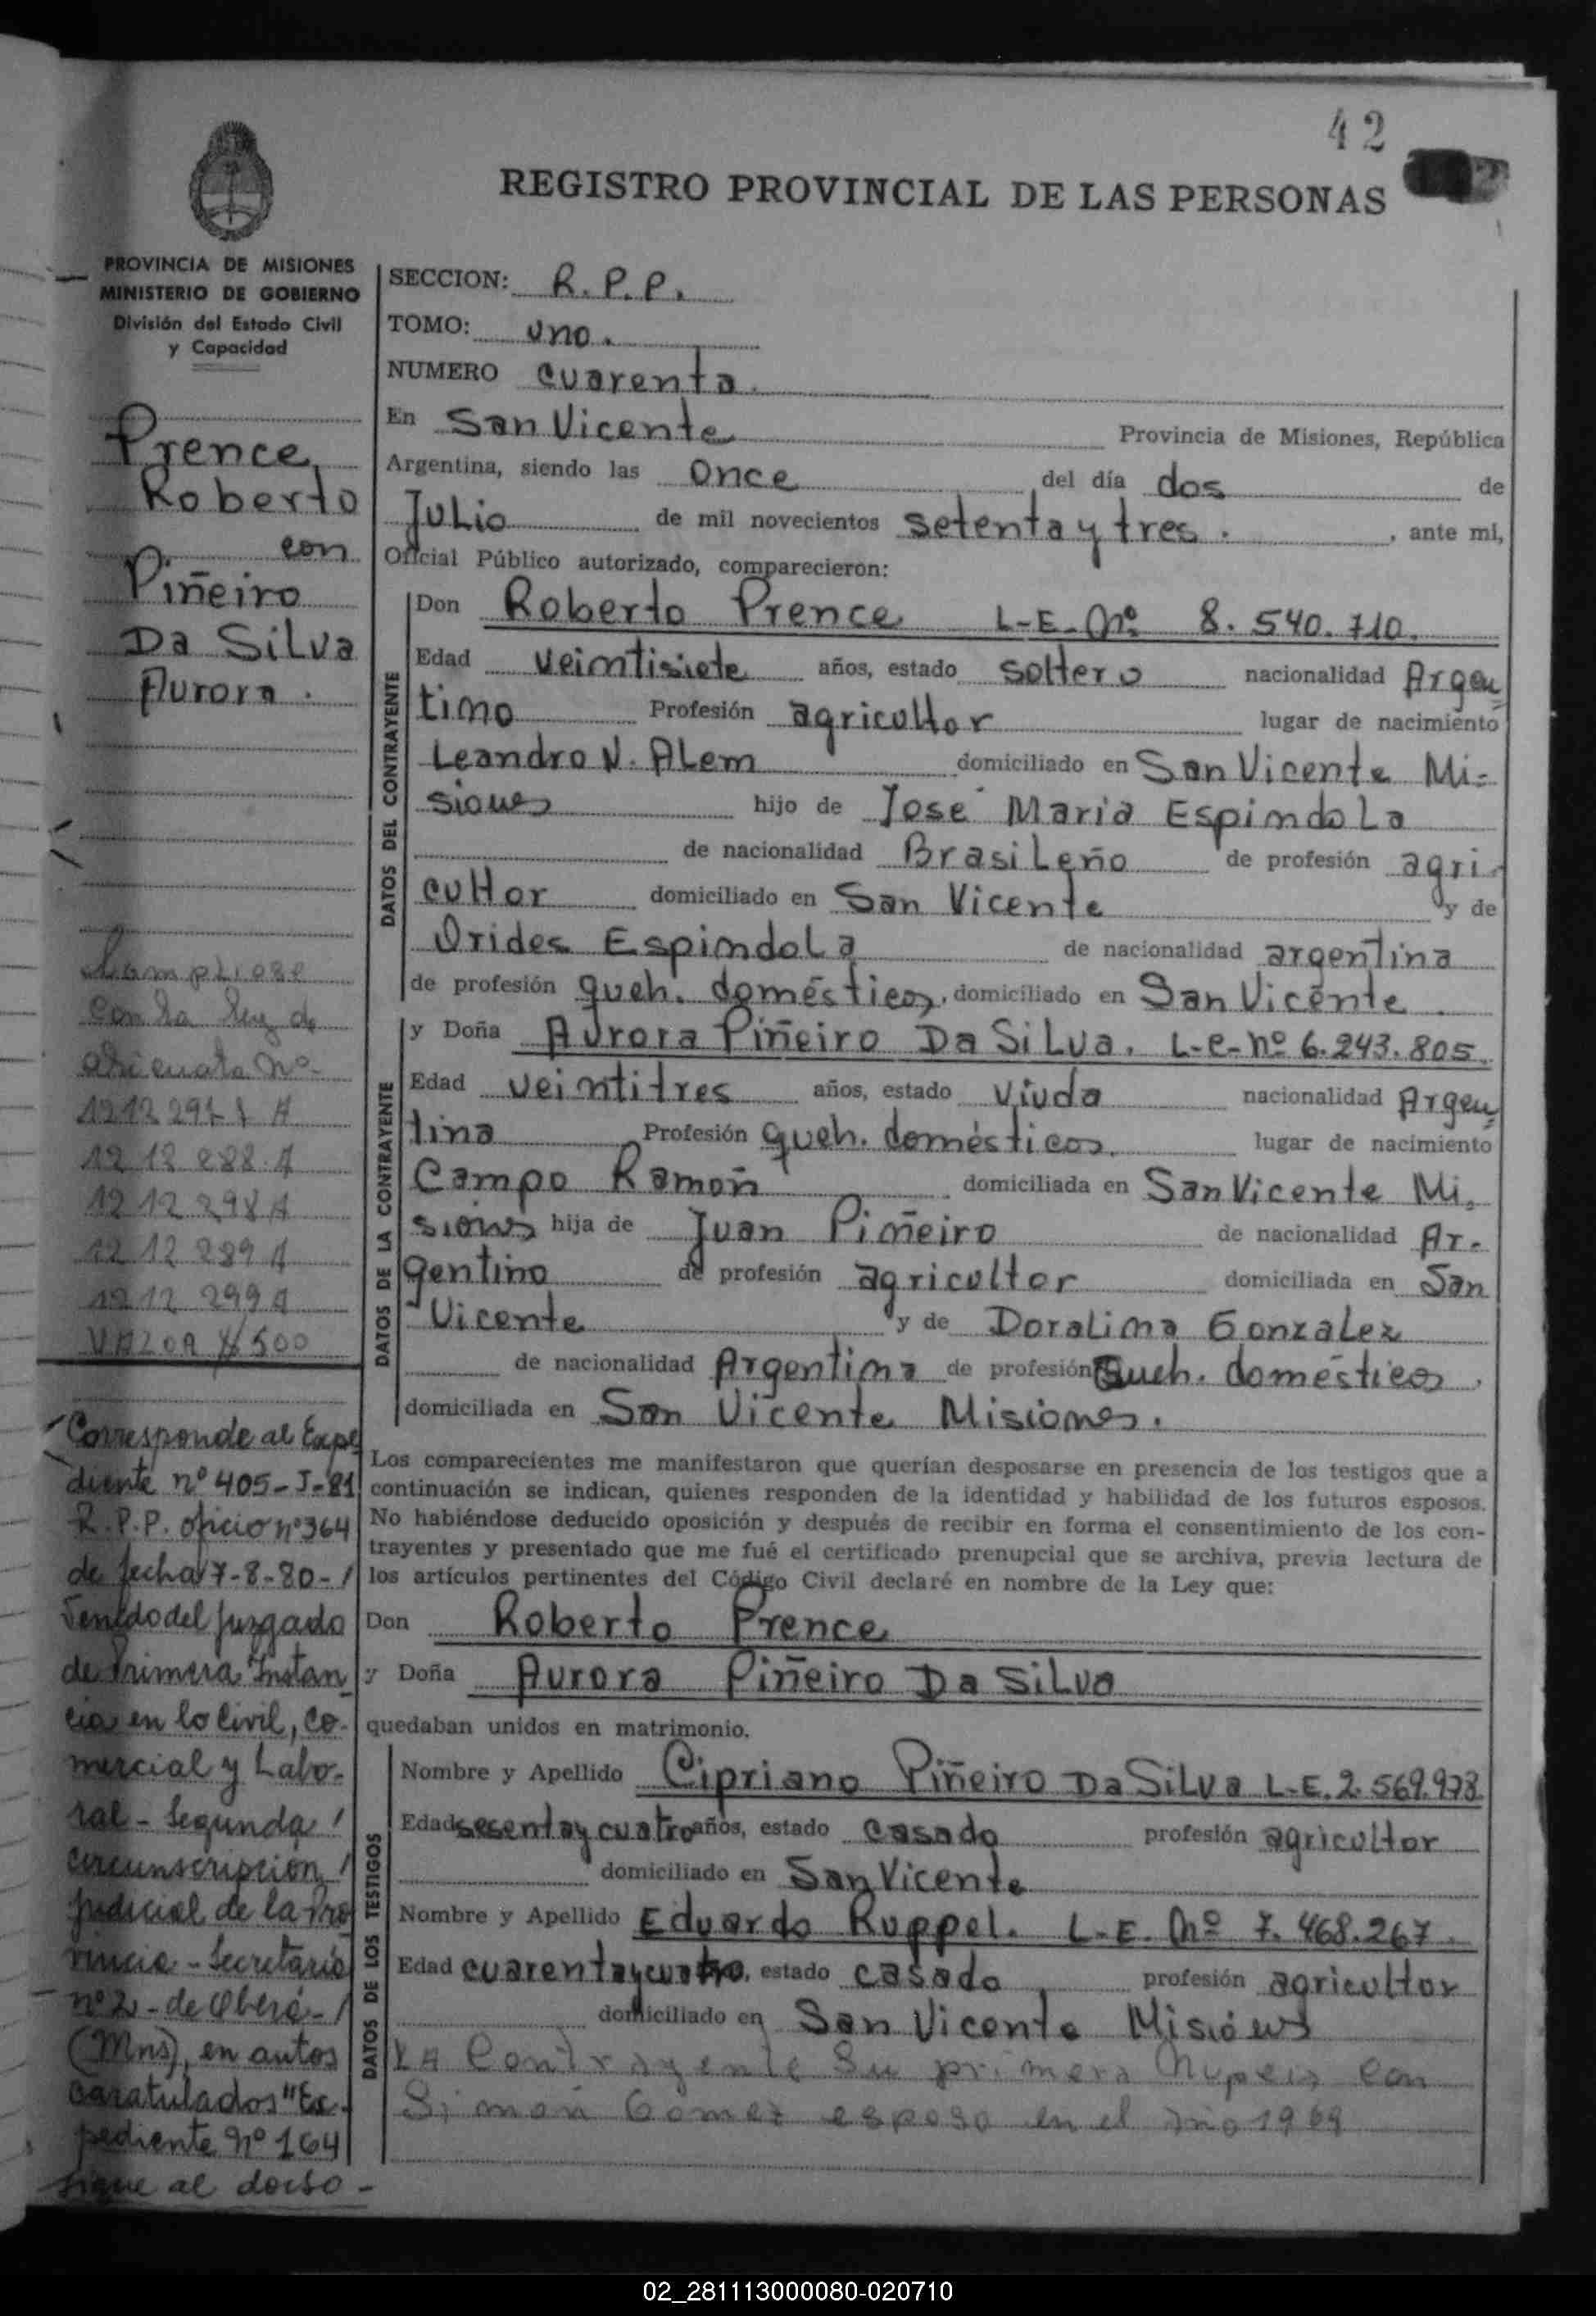 42
REGISTRO PROVINCIAL DE LAS PERSONAS
PROVINCIA DE MISIONES
MINISTERIO DE GOBIERNO
División del Estado Civil
y Capacidad
Prence
Roberto
con
Piñeiro
Da Silva
Aurora.
Cumpliose
con la ley de
Nº
1212298 A
1212299 A
VALOR $ 500
Corresponde al Expe
diente nº 405-J-81
R.P.P. oficio nº 364
de fecha 7-8-80-/
del Juzgado
de Primera Instan
cia en lo Civil, Co-
mercial y Labo-
ral - Segunda /
circunscripción /
judicial de la Pro
vincia - Secretaria
nº 2 - de Oberá - /
(Mns), en autos
caratulados "Ex-
pediente Nº 164
sigue al dorso -
SECCION: R.P.P.
TOMO: uno.
NUMERO cuarenta.
En San Vicente Provincia de Misiones, República
Argentina, siendo las once del día dos de
Julio de mil novecientos setenta y tres. , ante mi,
Oficial Público autorizado, comparecieron:
DATOS DEL CONTRAYENTE
Don Roberto Prence L-E-Nº 8.540.710.
Edad veintisiete años, estado soltero nacionalidad Argen
tino Profesión agricultor lugar de nacimiento
Leandro N. Alem domiciliado en San Vicente Mi-
siones hijo de José Maria Espindola
de nacionalidad Brasileño de profesión agri-
cultor domiciliado en San Vicente y de
Orides Espindola de nacionalidad argentina
de profesión queh. domésticos, domiciliado en San Vicente.
DATOS DE LA CONTRAYENTE
y Doña Aurora Piñeiro Da Silva. L-e-nº 6.243.805.
Edad veintitres años, estado viuda nacionalidad Argen
tina Profesión queh. domésticos. lugar de nacimiento
Campo Ramón domiciliada en San Vicente Mi-
siones hija de Juan Piñeiro de nacionalidad Ar-
gentino de profesión agricultor domiciliada en San
Vicente y de Doralina Gonzalez
de nacionalidad Argentina de profesión Queh. domésticos.
domiciliada en San Vicente Misiones.
Los comparecientes me manifestaron que querían desposarse en presencia de los testigos que a
continuación se indican, quienes responden de la identidad y habilidad de los futuros esposos.
No habiéndose deducido oposición y después de recibir en forma el consentimiento de los con-
trayentes y presentado que me fué el certificado prenupcial que se archiva, previa lectura de
los artículos pertinentes del Código Civil declaré en nombre de la Ley que:
Don Roberto Prence
y Doña Aurora Piñeiro Da Silva
quedaban unidos en matrimonio.
DATOS DE LOS TESTIGOS
Nombre y Apellido Cipriano Piñeiro Da Silva L-E. 2.569.978
Edad sesenta y cuatro años, estado casado profesión agricultor
domiciliado en San Vicente
Nombre y Apellido Eduardo Ruppel. L-E. Nº 7.468.267.
Edad cuarenta y cuatro, estado casado profesión agricultor
domiciliado en San Vicente Misiones
La Contrayente Su primera Nupcia con
Simón Gomez esposo en el año 1969
02_281113000080-020710